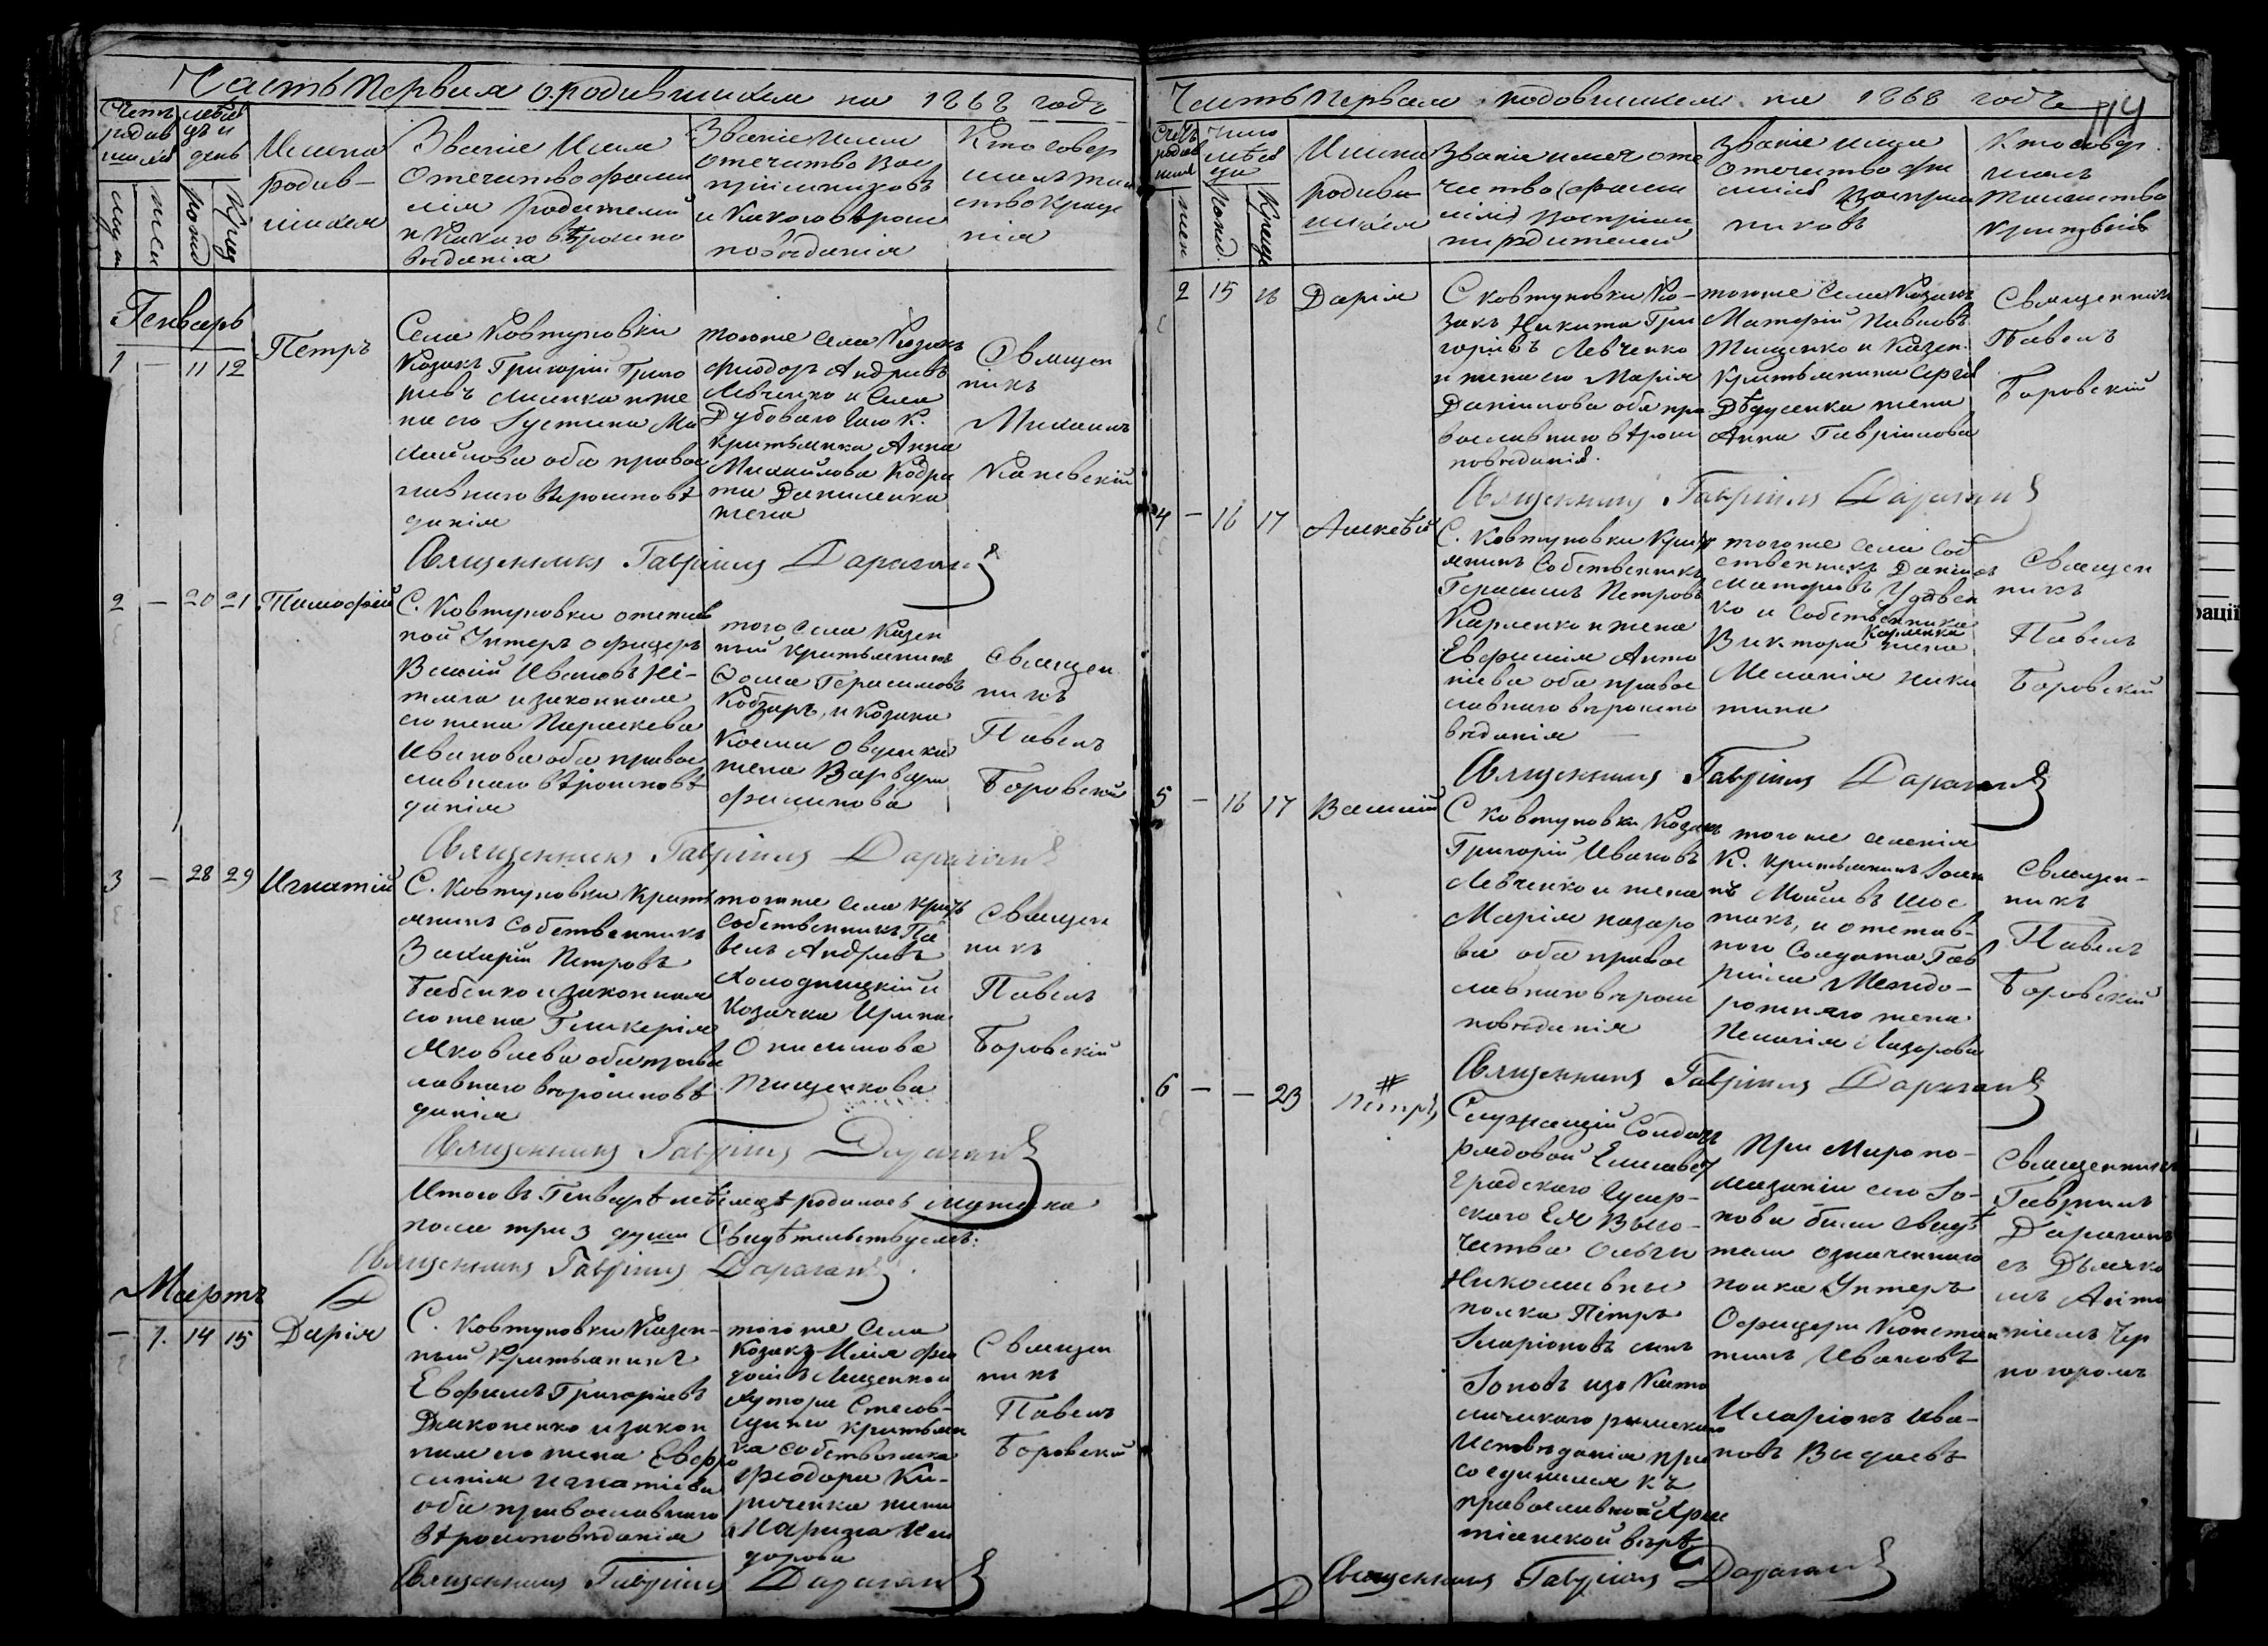 Часть первая о родившихся на 1868 годъ
Счетъ родив шихся
месяцъ и день
муж
жен
рожд
Крещ
Имена
родив-
шихся
Званіе Имя
Отечество фами
лія родителей
и Какого вѣроиспо
вѣданія
Званіе Имя
Отечество Вос
пріемниковъ
и Какого вѣроис
повѣданія
Кто совер
шалъ таин
ство Креще
нія
Генварь
1 — 11 12
Петръ
Села Ковтуновки
Козакъ Григорій Григо
ріевъ Лисенко и же
на его Іустина Ми
хайлова оба правос
лавнаго вѣроисповѣ
данія
тогоже села Козакъ
Феодоръ Андріевъ
Левченко и Села
Дубоваго Гаю К.
крестьянка Анна
Михайлова Кодра
та Даниленка
жена
Священ
никъ
Михаилъ
Каневскій
Священникъ Гавріилъ Дараган
2 — 20 21
Тимофей
С. Ковтуновки отстав
ной Унтеръ офицеръ
Василій Ивановъ
и законная
его жена Параскева
Иванова оба правос
лавнаго вѣроисповѣ
данія
того Села Казен
ный крестьянинъ
Фома Герасимовъ
Кобзарь, и Козака
Косми Овдіенка
жена Варвара
Филипова
Священ
никъ
Павелъ
Боровскій
Священникъ Гавріилъ Дараган
3 — 28 29
Игнатій
С. Ковтуновки Кресть
янинъ Собственникъ
Захарій Петровъ
Бабенко и законная
его жена Гликерія
Яковлева оба право
славнаго вѣроисповѣ
данія
тогоже села крест
собственникъ Па
велъ Андріевъ
Холодницкій и
Козачка Ирина
Онисимова
Тищенкова
Священ
никъ
Павелъ
Боровскій
Священникъ Гавріилъ Дараган
Итого въ Генварѣ месяцѣ родилось мужска
пола три 3 души Свидѣтельствуемъ:
Священникъ Гавріилъ Дараган
Мартъ
— 1. 14 15
Дарія
С. Ковтуновки Казен-
ный Крестьянинъ
Евфимъ Григоріевъ
Дяконенко и закон
ная его жена Евфро
синія Игнатіева
оба православнаго
вѣроисповѣданія
тогоже Села
Козакъ Илія Фео
доровъ Лященко и
хутора
крестьян
ка собственника
Феодора Ки-
риченка жена
Марина
дорова
Священ
никъ
Павелъ
Боровскій
Священникъ Гавріилъ Дараган
Часть первая родовшихся на 1868 годъ
114
Счетъ родив шихся
число мѣся ца
жен
рожд.
Креще
Имена
родив
шихся
Званіе имя оте
чество фами
лія
родителей
Званіе имя
отечество фа
милія Воспріем
никовъ
Кто совер
шалъ
таинство
крещенія
2 15 16
Дарія
С Ковтуновки Ко-
закъ Никита Гри
горіевъ Левченко
и жена его Марія
Даніилова оба пра
вославнаго вѣроис
повѣданія.
тогоже Села Козакъ
Матфій Павловъ
Тищенко и Казен.
Крестьянина Сергія
Дѣдусенка жена
Анна Гавріилова
Священникъ
Павелъ
Боровскій
Священникъ Гавріилъ Дараган
4 — 16 17
Алексѣй
С. Ковтуновки Крест
янинъ Собственникъ
Герасимъ Петровъ
Карпенко и жена
Евфимія Анто
ніева оба правос
лавнаго вѣроиспо
вѣданія
тогоже села Соб
ственникъ Даніилъ
Матфіевъ Удовен
ко и Собственника
Виктора Карпенка жена
Меланія Ники
тина
Священ
никъ
Павелъ
Боровскій
Священникъ Гавріилъ Дараган
5 — 16 17
Василій
С Ковтуновки Козакъ
Григорій Ивановъ
Левченко и жена
Марія Назаро
ва оба правос
лавнаго вѣрои
повѣданія
тогоже селенія
К. крестьянинъ Іоан
нъ Моисіевъ Шос
такъ, и отстав-
ного Солдата Гав
ріила Межидо-
рожняго жена
Пелагія Лазорова
Священ-
никъ
Павелъ
Боровскій
Священникъ Гавріилъ Дараган
6 — — 23
#
Петръ
Служащій Солдатъ
рядовой Елисавет
Градского Гусар-
скаго Ея Высо-
чества Ольги
Николаевны
полка Пётръ
Іларіоновъ сынъ
Іоновъ изъ Като
лическаго римскаго
Исповѣданія при
соединился къ
православной Хрис
тіанской вѣрѣ
При Миропо-
мазаніи его Іо-
нова были Свидѣ
тели означеннаго
полка Унтеръ
Офицеры Констан
тинъ Ивановъ
Иларіонъ Ива-
новъ
Священникъ
Гавріилъ
Дараганъ
съ Дьячко
мъ Анто
ніемъ Чер
ногоромъ
Священникъ Гавріилъ Дараган
рації